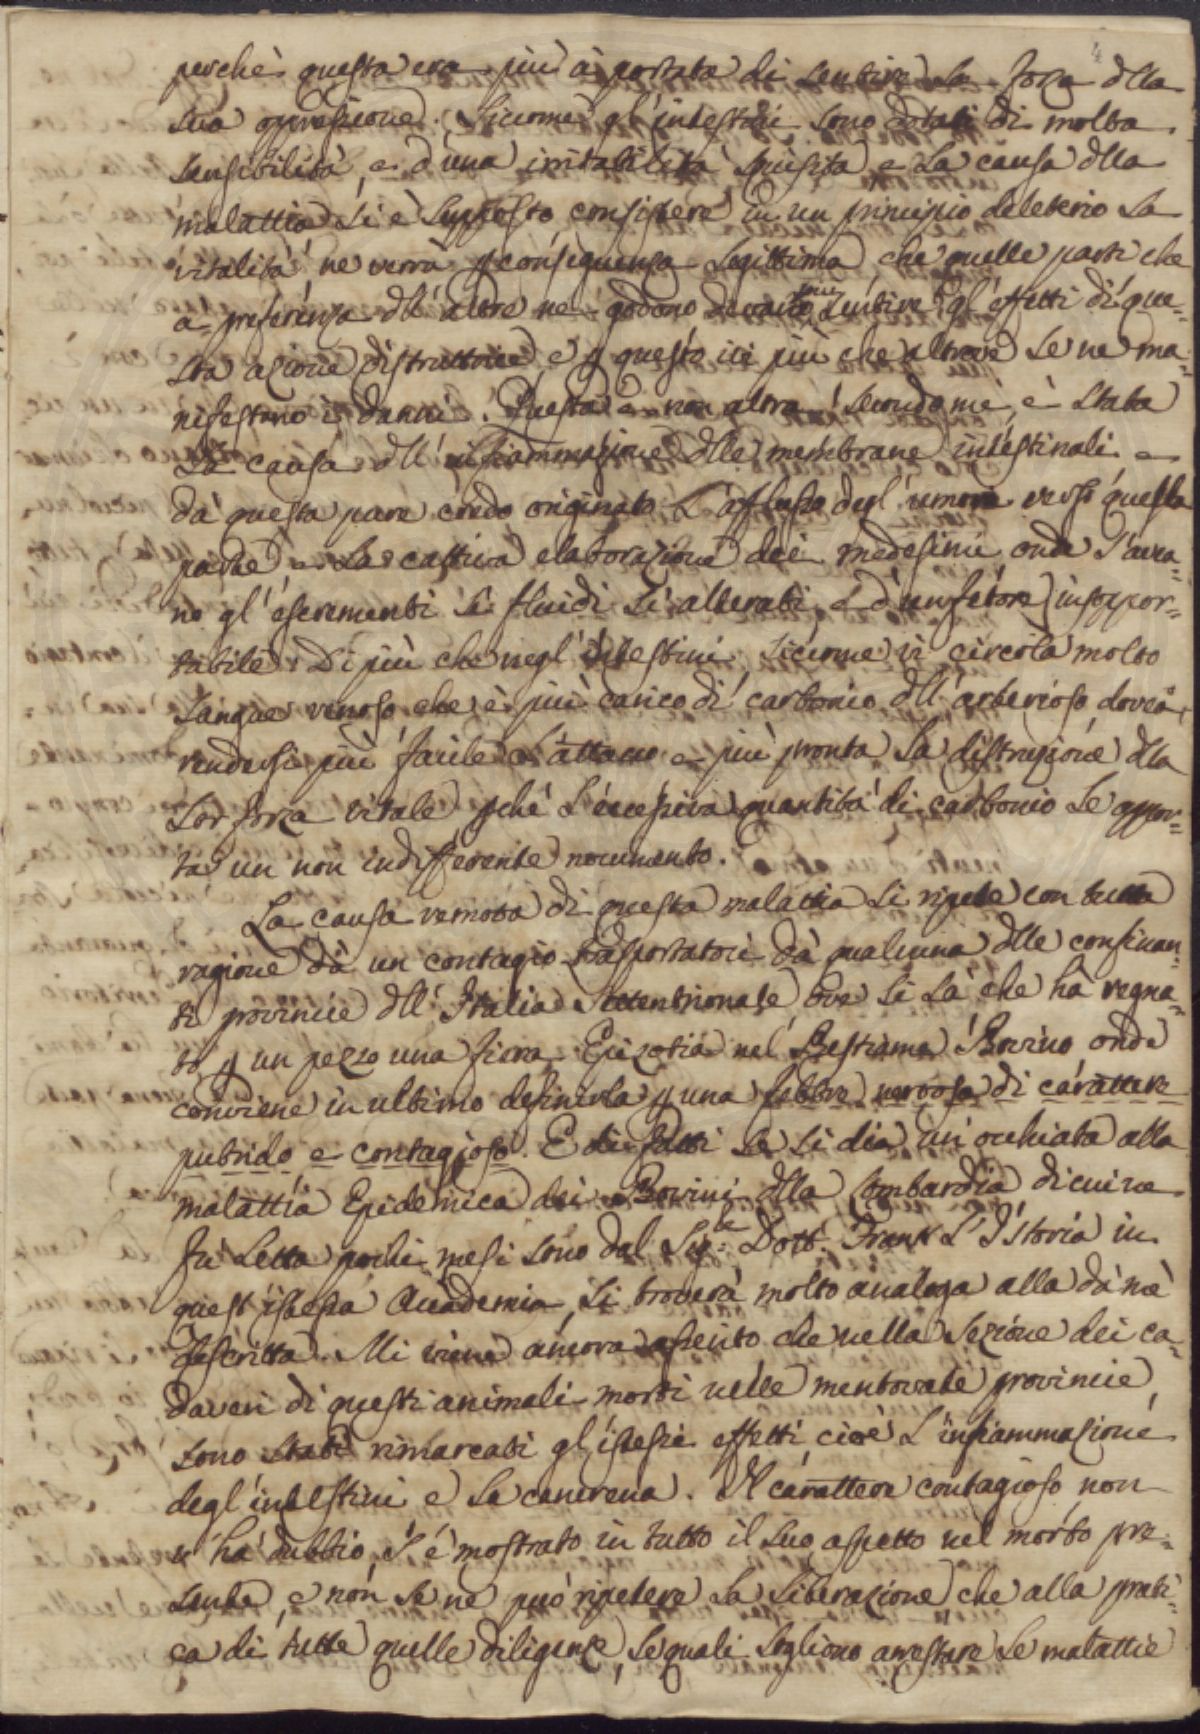 4
perchè questa era più à portata di sentire la forza dlla
sua oppressione. Siccome gl'intestini sono dotati di molta
sensibilità, e d'una irritabilità squisita e la causa dlla
malattia si è supposto consistere in un principio deleterio la
vitalità ne verrà p conseguenza legittima che quelle parti che
a preferenza dll'altre ne godono devono più sentire gl'effetti di que=
sta azione distruttrice e p questo ivi più che altrove se ne ma=
nifestano i danni. Questa e non altra secondo me, è stata
la causa dll'infiammazione dlle membrane intestinali e
da questa pure credo originato l'afflusso degl'umori verso quella
parte e la cattiva elaborazione dei medesimi onde s'avea=
no gl'escrementi sì fluidi sì alterati, e d'un fetore insoppor=
tabile. Di più che negl'intestini siccome vi circola molto
sangue venoso che è più carico di carbonio dll'arterioso dovea
rendersi più facile l'attacco e più pronta la distruzione dlla
lor forza vitale pchè l'eccessiva quantità di carbonio le appor=
ta un non indifferente nocumento.
La causa remota di questa malattia si ripete con tutta
ragione dà un contagio trasportatoci dà qualcuna dlle confinan=
ti provincie dll'Italia Settentrionale ove si sà che hà regna=
to p un pezzo una fiera Epizotia nel Bestiame Bovino onde
conviene in ultimo definirla p una febbre nervosa di carattere
putrido e contagioso. E di fatti se si dia un'occhiata alla
malattia Epidemica dei Bovini dlla Lombardia di cui ne
fù letta pochi mesi sono dal Sig.re Dott. Frank l'Istoria in
quest'istessa Accademia, si troverà molto analoga alla dà me
descritta. Mi viene ancora asserito che nella sezione dei ca=
daveri di questi animali morti nelle mentovate provincie,
sono stati rimarcati gl'istessi effetti cioè l'infiammazione
degl'intestini e la cancrena. Il carattere contagioso non
v'hà dubbio s'è mostrato in tutto il suo aspetto nel morbo pre=
sente, e non se ne può ripetere la liberazione che alla prati=
ca di tutte quelle diligenze, le quali sogliono arrestare le malattie